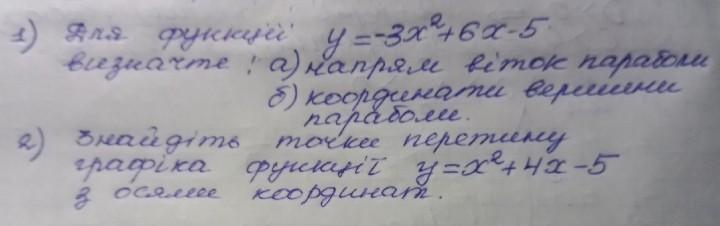 1) Для функції y=-3x²+6x-5
визначте: а) напрям віток параболи
б) координати вершини
параболи.
2) Знайдіть точки перетину
графіка функції y=x²+4x-5
з осями координат.